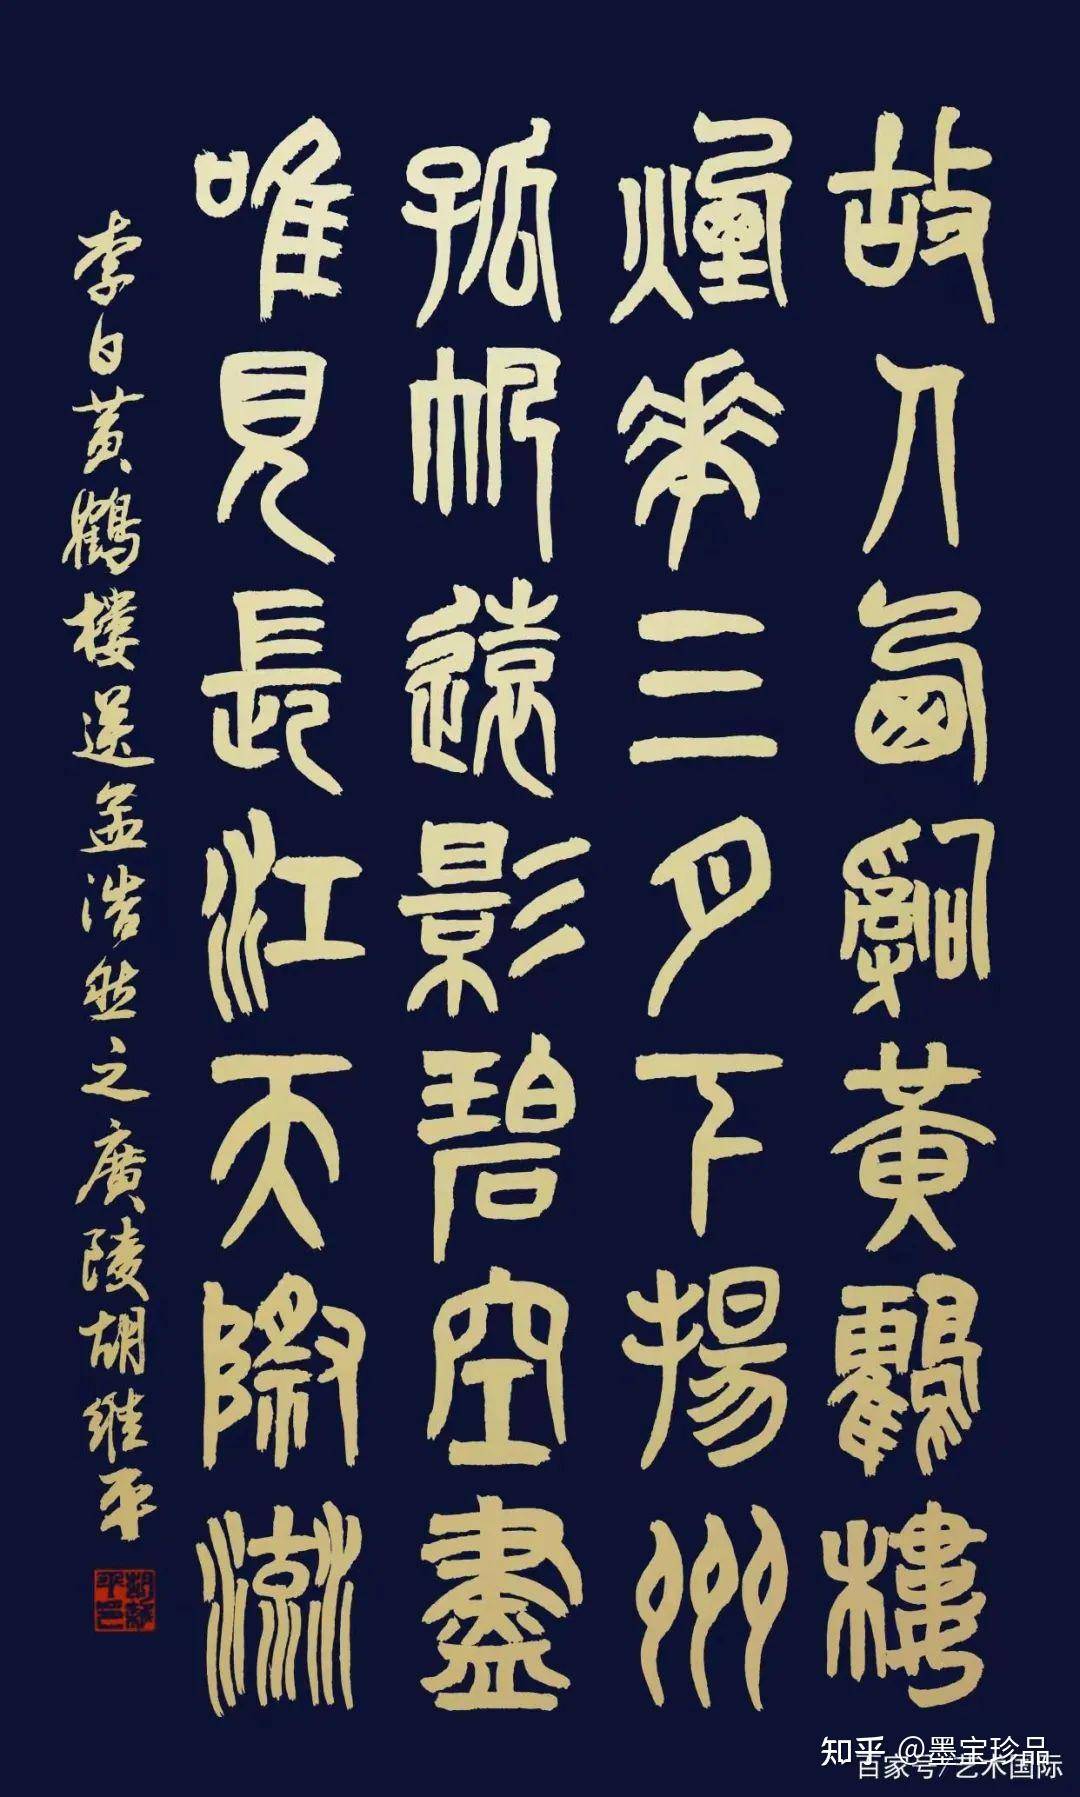 故人西辭黃鶴樓
煙花三月下揚州
孤帆遠影碧空盡
唯見長江天際流
李白黃鶴樓送孟浩然之廣陵胡維平
胡維平印
知乎 @墨宝珍品
百家号/艺术国际